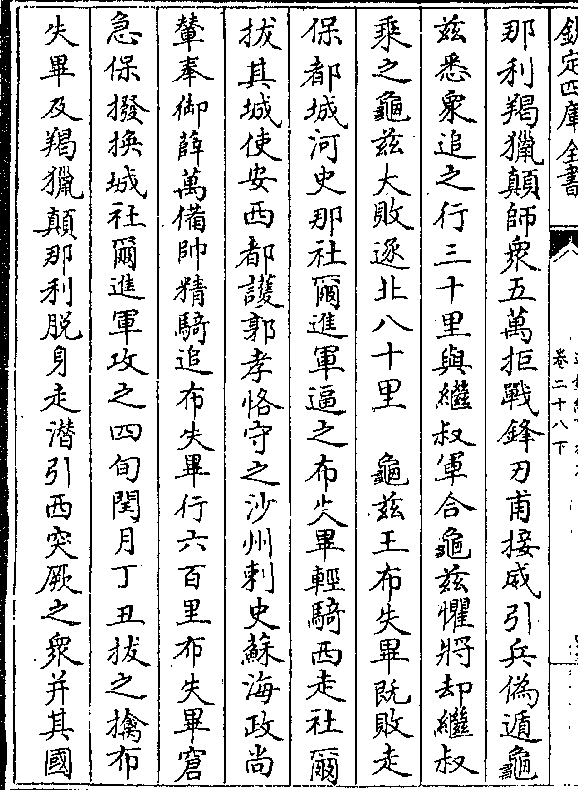 欽定四庫全書
卷二十八下
那利羯獵顛師衆五萬拒戰鋒刃甫接威引兵偽遁龜
兹悉衆追之行三十里與繼叔軍合龜兹懼將却繼叔
乗之龜兹大敗逐北八十里　龜兹王布失畢既敗走
保都城河史那社爾進軍逼之布失畢輕騎西走社爾
拔其城使安西都護郭孝恪守之沙州刺史蘇海政尚
輦奉御薛萬備帥精騎追布失畢行六百里布失畢窘
急保撥換城社爾進軍攻之四旬閏月丁丑拔之擒布
失畢及羯獵顛那利脱身走潜引西突厥之衆并其國